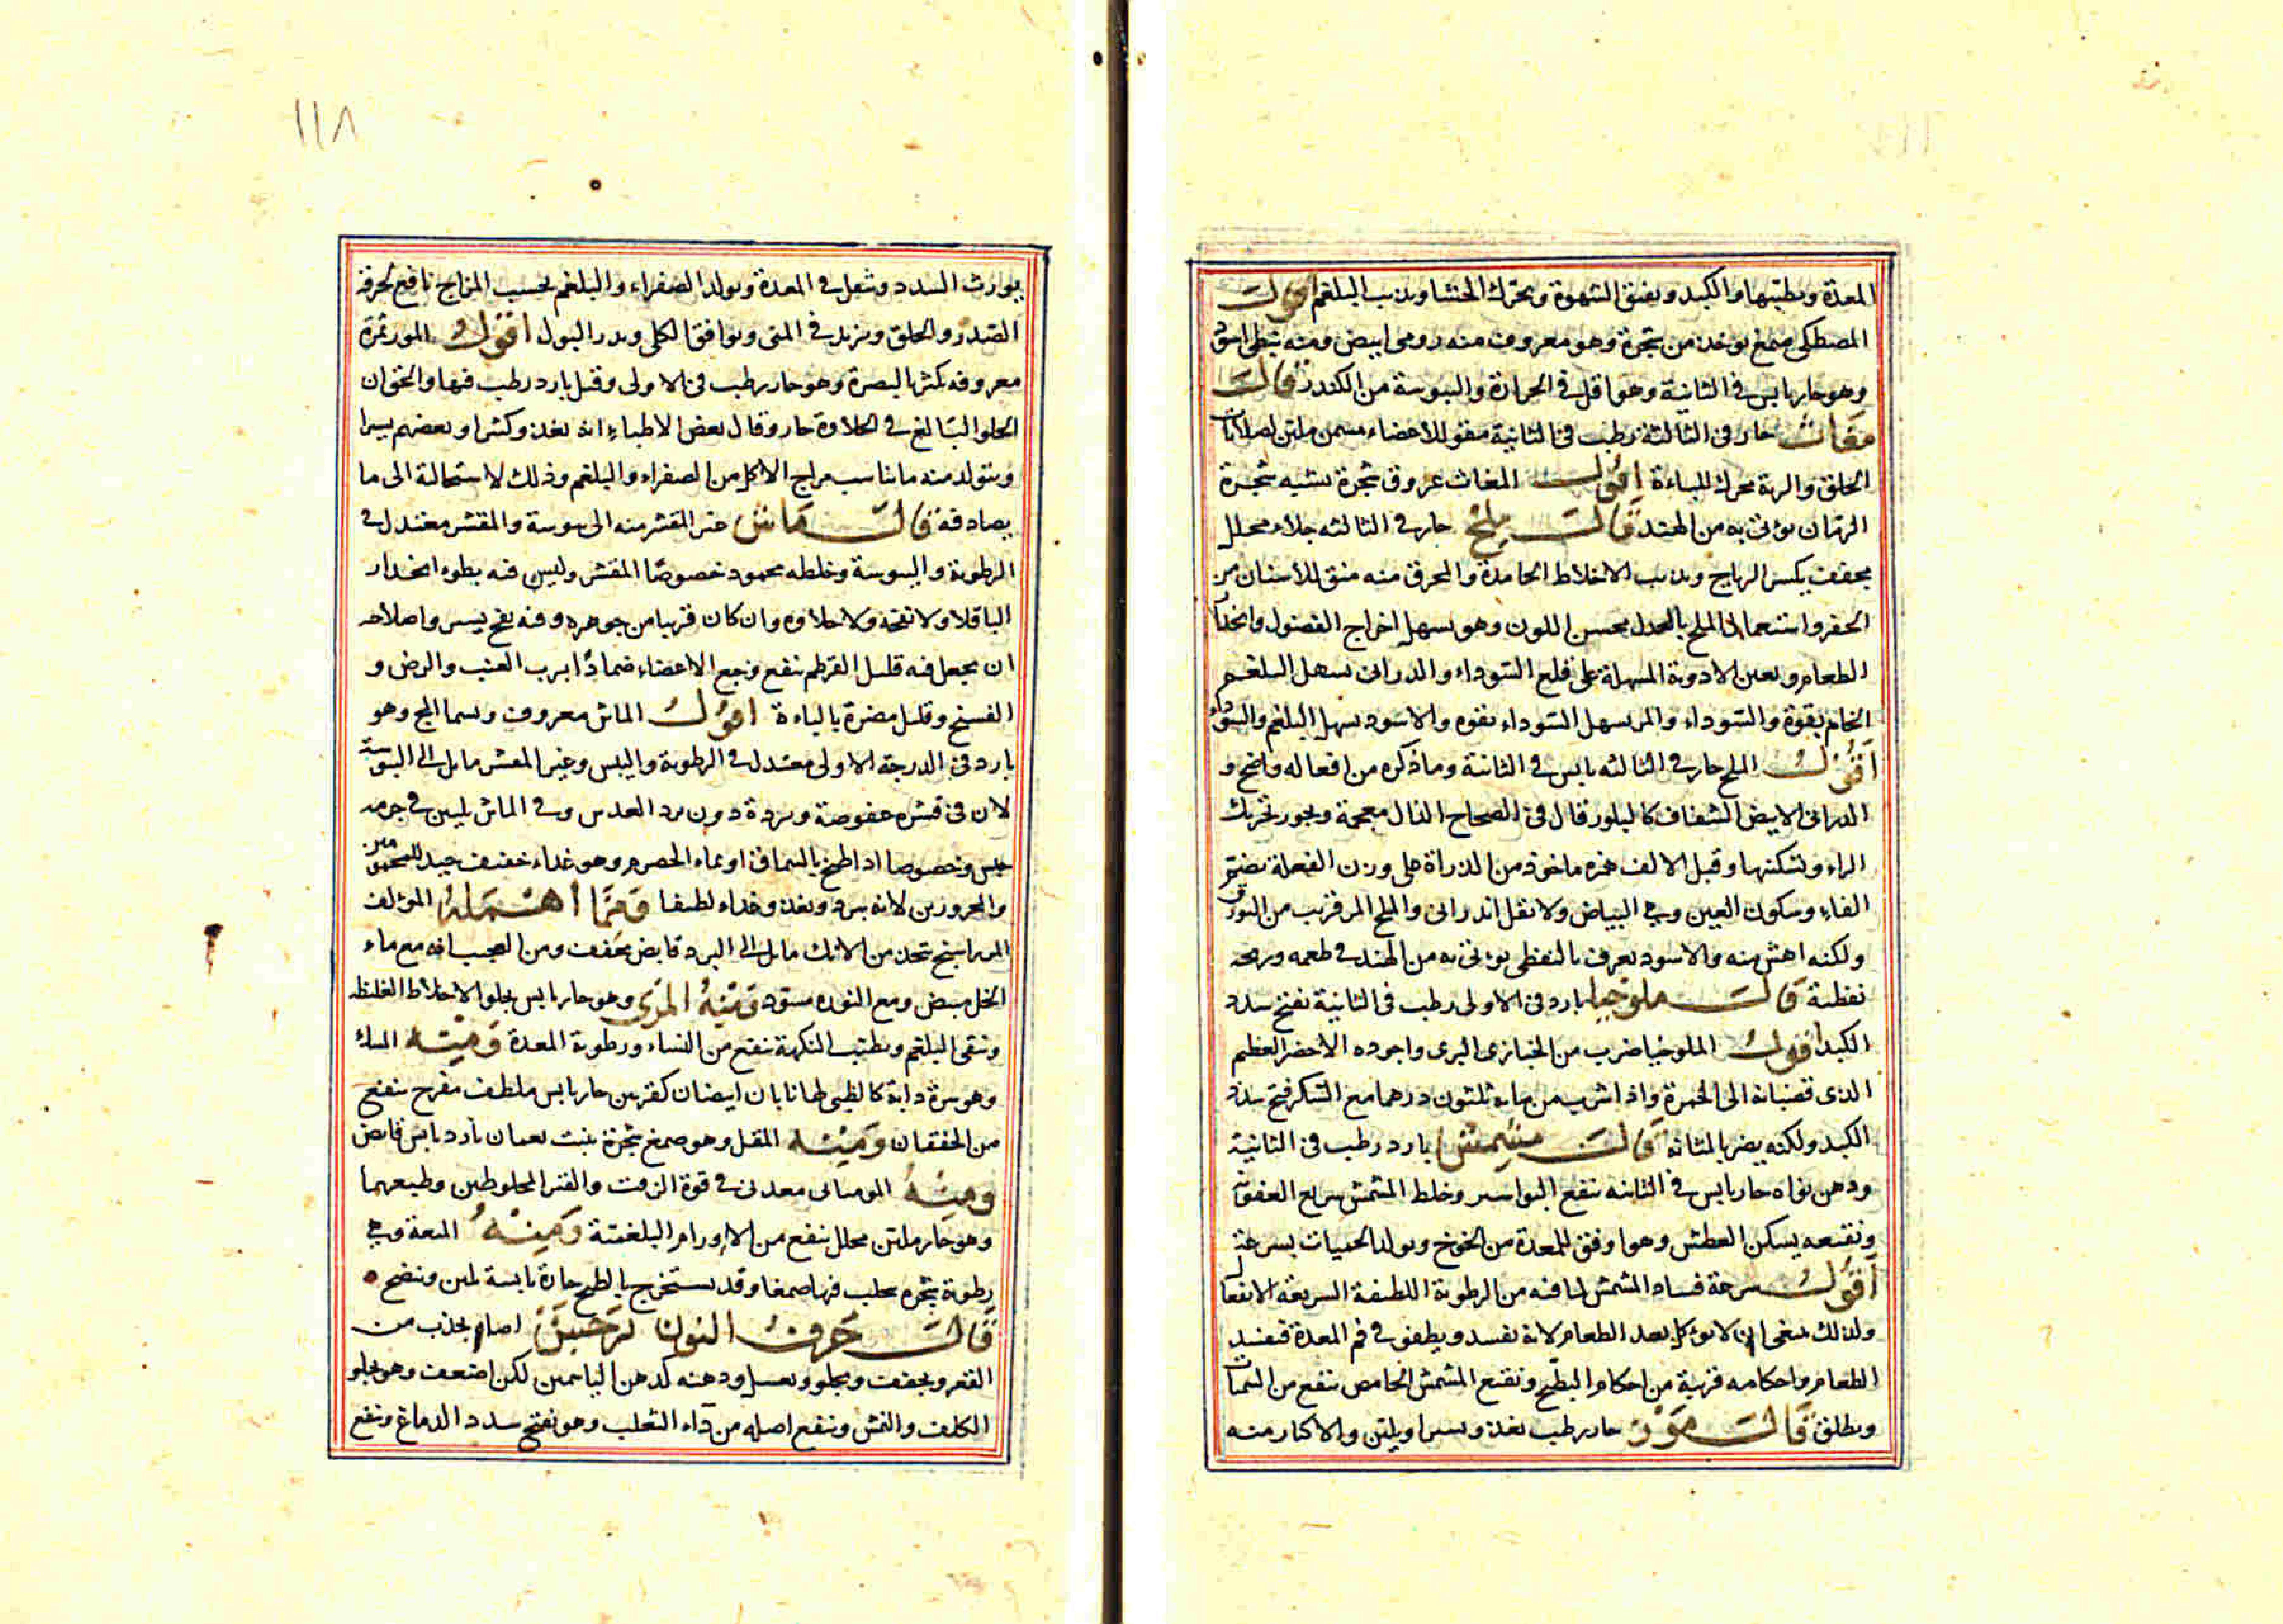 المعدة ويطيبها والكبد ويفتق الشهوة ويحرك الجشا ويذيب البلغم اقول
المصطكى صمغ يوخذ من شجرة وهو معروف منه رومى ابيض ومنه نبطى اسود
وهو حار يابس فى الثانية وهو اقل فى الحرارة واليبوسة من الكندر قال
مغاث حار فى الثالثة رطب فى الثانية مقو للاعضاء مسمن ملين لصلابات
الحلق والرية محرك للباءة اقول المغاث عروق شجرة تشبه شجرة
الرمان يؤتى به من الهند قال ملح حار فى الثالثه جلاء محلل
مجفف يكسر الرياح ويذيب الاخلاط الجامدة والمحرق منه منق للاسنان من
الحفر واستعمال الملح بالعدل محسن اللون وهو يسهل اخراج الفضول وانحدار
الطعام ويعين الادوية المسهلة على قلع السوداء والدرانى يسهل البلغم
الخام بقوة والسوداء والمر يسهل السوداء بقوه والاسود يسهل البلغم والسوداء
اقول الملح حار فى الثالثه يابس فى الثانية وما ذكره من افعاله واضح و
الدرانى الابيض الشفاف كالبلور قال فى الصحاح الذال معجمة ويجوز تحريك
الراء وتسكينها وقبل الالف همزه ماخوذ من الذرأة على وزن الفعلة بضم
الفاء وسكون العين وهى البياض ولا تقل اندرانى والملح المر قريب من البورق
ولكنه اهش منه والاسود يعرف بالنفطى يؤتى به من الهند فى طعمه وريحه
نفطية قال ملوخيا بارد فى الاولى رطب فى الثانية يفتح سدد
الكبد اقول الملوخيا ضرب من الخبازى البرى واجوده الاخضر العظيم
الذى قضبانه الى الحمرة واذا شرب من مائه ثلثون درهما مع السكر فتح سدد
الكبد ولكنه يضر بالمثانه قال مشمش بارد رطب فى الثانية
ودهن نواه حار يابس فى الثانيه ينفع البواسير وخلط المشمش سريع العفونة
ونقيعه يسكن العطش وهو اوفق للمعدة من الخوخ ويولد الحميات بسرعة
اقول سرعة فساد المشمش لما فيه من الرطوبة اللطيفة السريعة الانفعال
ولذلك ينبغى ان لا يؤكل بعد الطعام لانه يفسد ويطفو فى فم المعدة فيفسد
الطعام واحكامه قريبة من احكام البطيخ ونقيع المشمش الحامض ينفع من الحميات
ويطلق قال موز حار رطب يغذو يسيرا ويلين والاكثار منه
يورث السدد وثقل فى المعدة ويولد الصفراء والبلغم بحسب المزاج نافع لحرقة
الصدر والحلق ويزيد فى المنى ويوافق الكلى ويدر البول اقول الموز ثمرة
معروفه يكثر بالبصرة وهو حار رطب فى الاولى وقيل بارد رطب فيها والحق ان
الحلو البالغ فى الحلاوة حار وقال بعض الاطباء انه يغذو كثيرا وبعضهم يسيرا
ويتولد منه ما يناسب مزاج الاكل من الصفراء والبلغم وذلك لاستحالته الى ما
يصادفه قال ماش غير المقشر منه الى يبوسة والمقشر معتدل فى
الرطوبة واليبوسة وخلطه محمود خصوصا المقشر وليس فيه بطوء انحدار
الباقلا ولا نفخه ولا جلاؤه وان كان قريبا من جوهره وفيه نفخ يسير واصلاحه
ان يجعل فيه قليل القرطم ينفع وجع الاعضاء ضمادا برب العنب والرض و
الفسخ وقليل مضرة بالباءة اقول الماش معروف ويسما المج وهو
بارد فى الدرجة الاولى معتدل فى الرطوبة واليبس وغير المقشر مايل الى اليبوسة
لان فى قشره عفوصة وبردة دون برد العدس وفى الماش تليين فى جرمه
حبس وخصوصا اذا طبخ بالسماق او بماء الحصرم وهو غذاء خفيف جيد للمحمومين
والمحرورين لانه يبرد ويغذو غذاء لطيفا ومما اهمله المؤلف
المرداسنج يتخذ من الانك مايل الى البرد قابض مجفف ومن العجب انه مع ماء
الخل مبيض ومع النوره مسود ومنه المرى وهو حار يابس يجلو الاخلاط الغليظه
وينقى البلغم ويطيب النكهة ينفع من النساء ورطوبة المعدة ومنه المسك
وهو سرة دابة كالظبى لها نابان ابيضان كقرنين حار يابس ملطف مفرح ينفع
من الخفقان ومنه المقل وهو صمغ شجرة ينبت بعمان بارد يابس قابض
ومنه الموميائى معدنى فى قوة الزفت والقير المخلوطين وطبعهما
وهو حار ملين محلل ينفع من الاورام البلغمية ومنه الميعة وهى
رطوبة شجره يحلب فيها صمغا وقد يستخرج بالطبخ حارة يابسة تلين وتنضج
قال حرف النون نرجس اصله يجذب من
القعر ويجفف ويجلو ويغسل ودهنه كدهن الياسمين لكن اضعف وهو يجلو
الكلف والنمش وينفع اصله من داء الثعلب وهو يفتح سدد الدماغ وينفع
١١٨